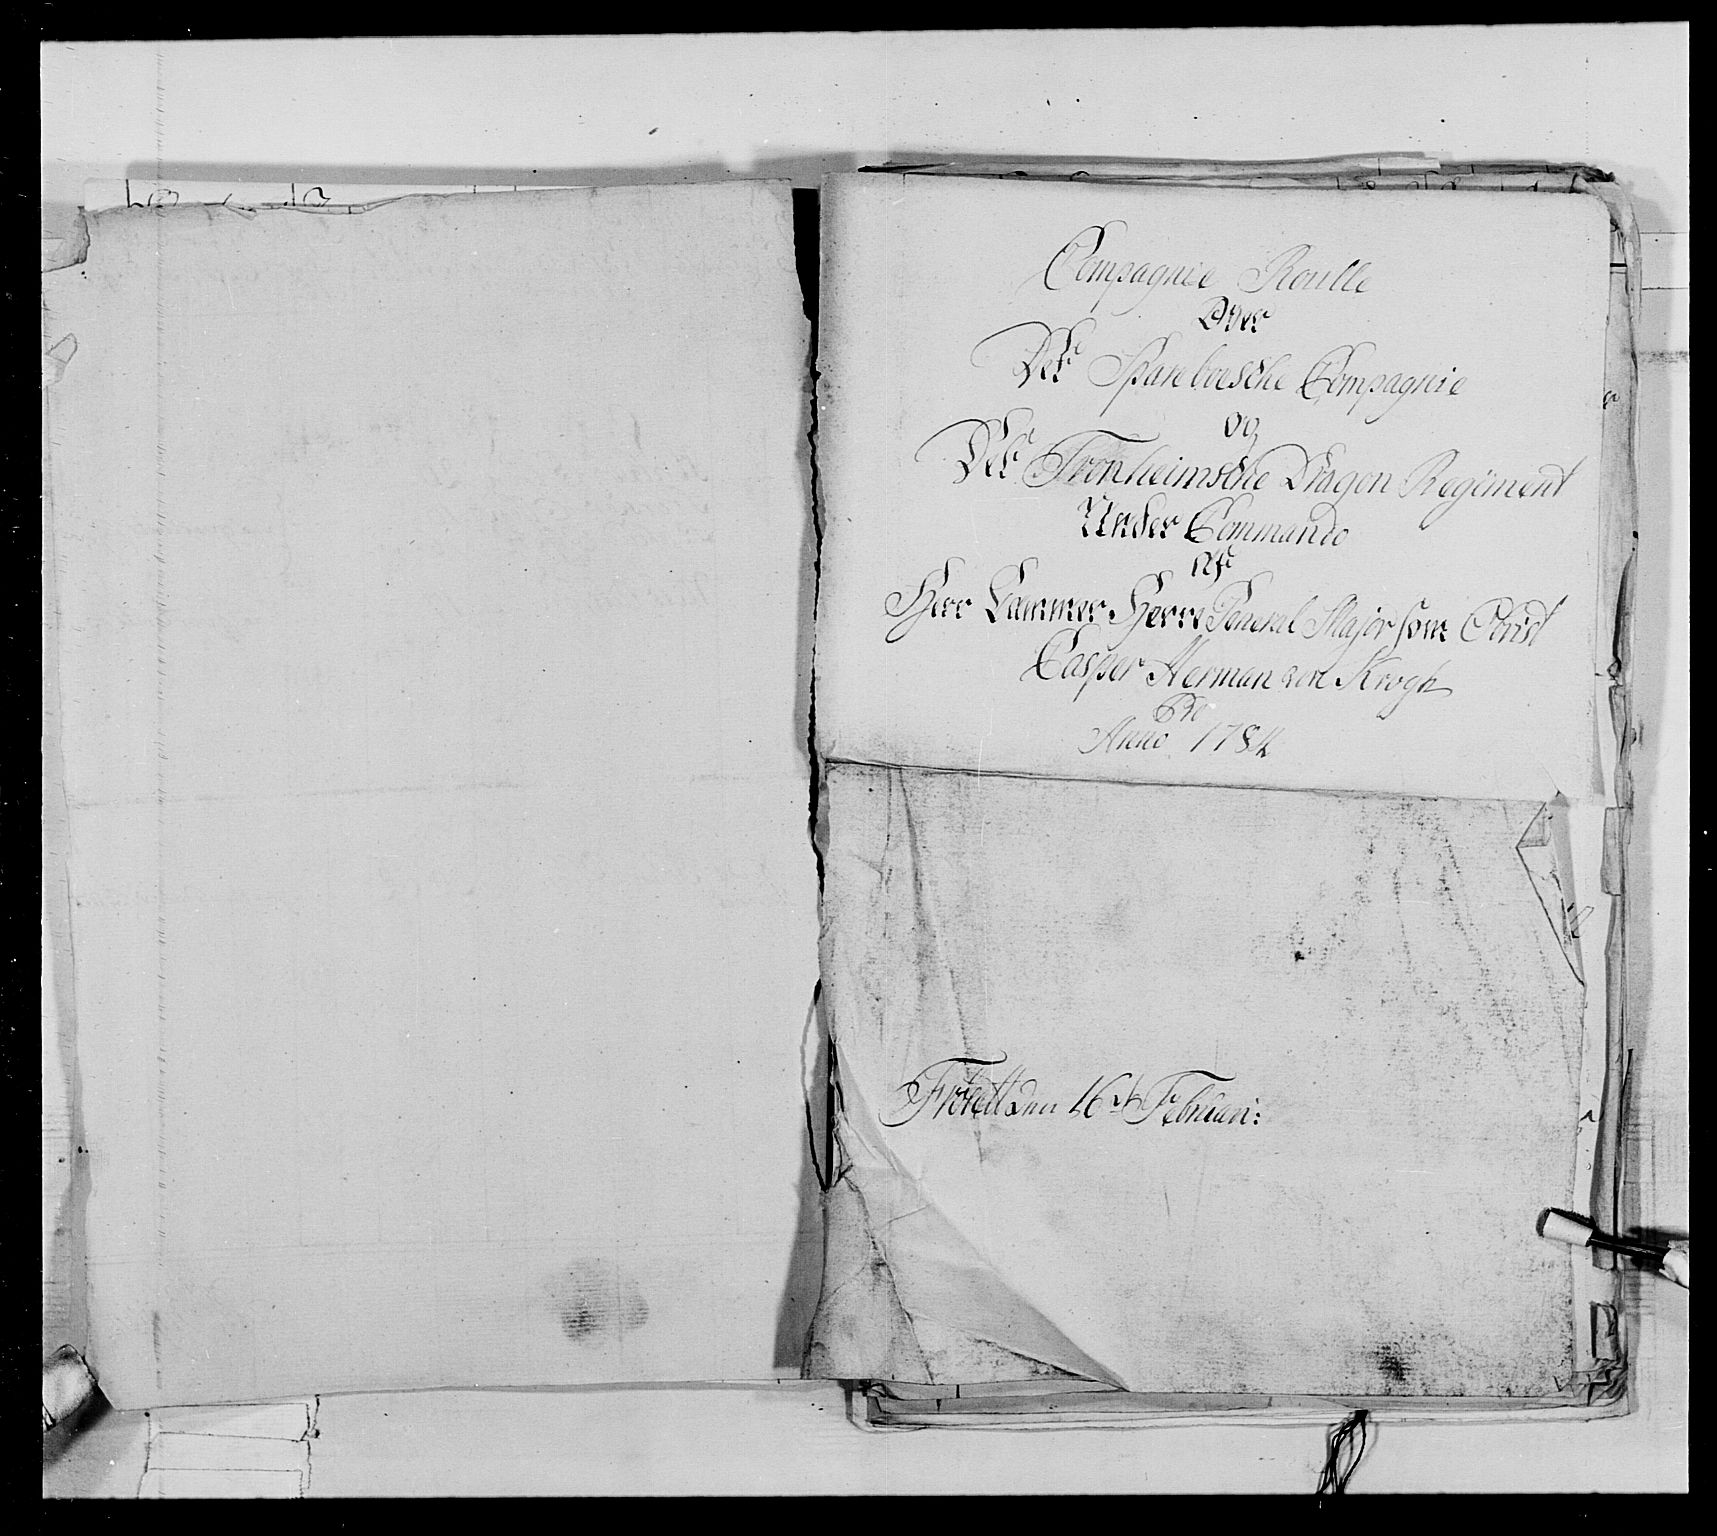 Compagnie Roulle
Over
Det Spareboesche Compagnie
og
Det Tronheimsche Dragon Regiment
Under Commando
Af
Herr Cammer Herre General Major som Obrist
Casper Herman von Krogh
Pro
Anno 1784
den 16de Februari: